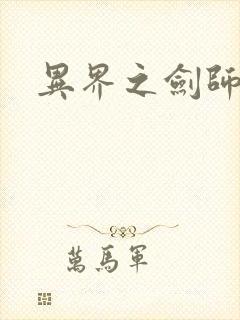 異界之劍師
萬馬軍